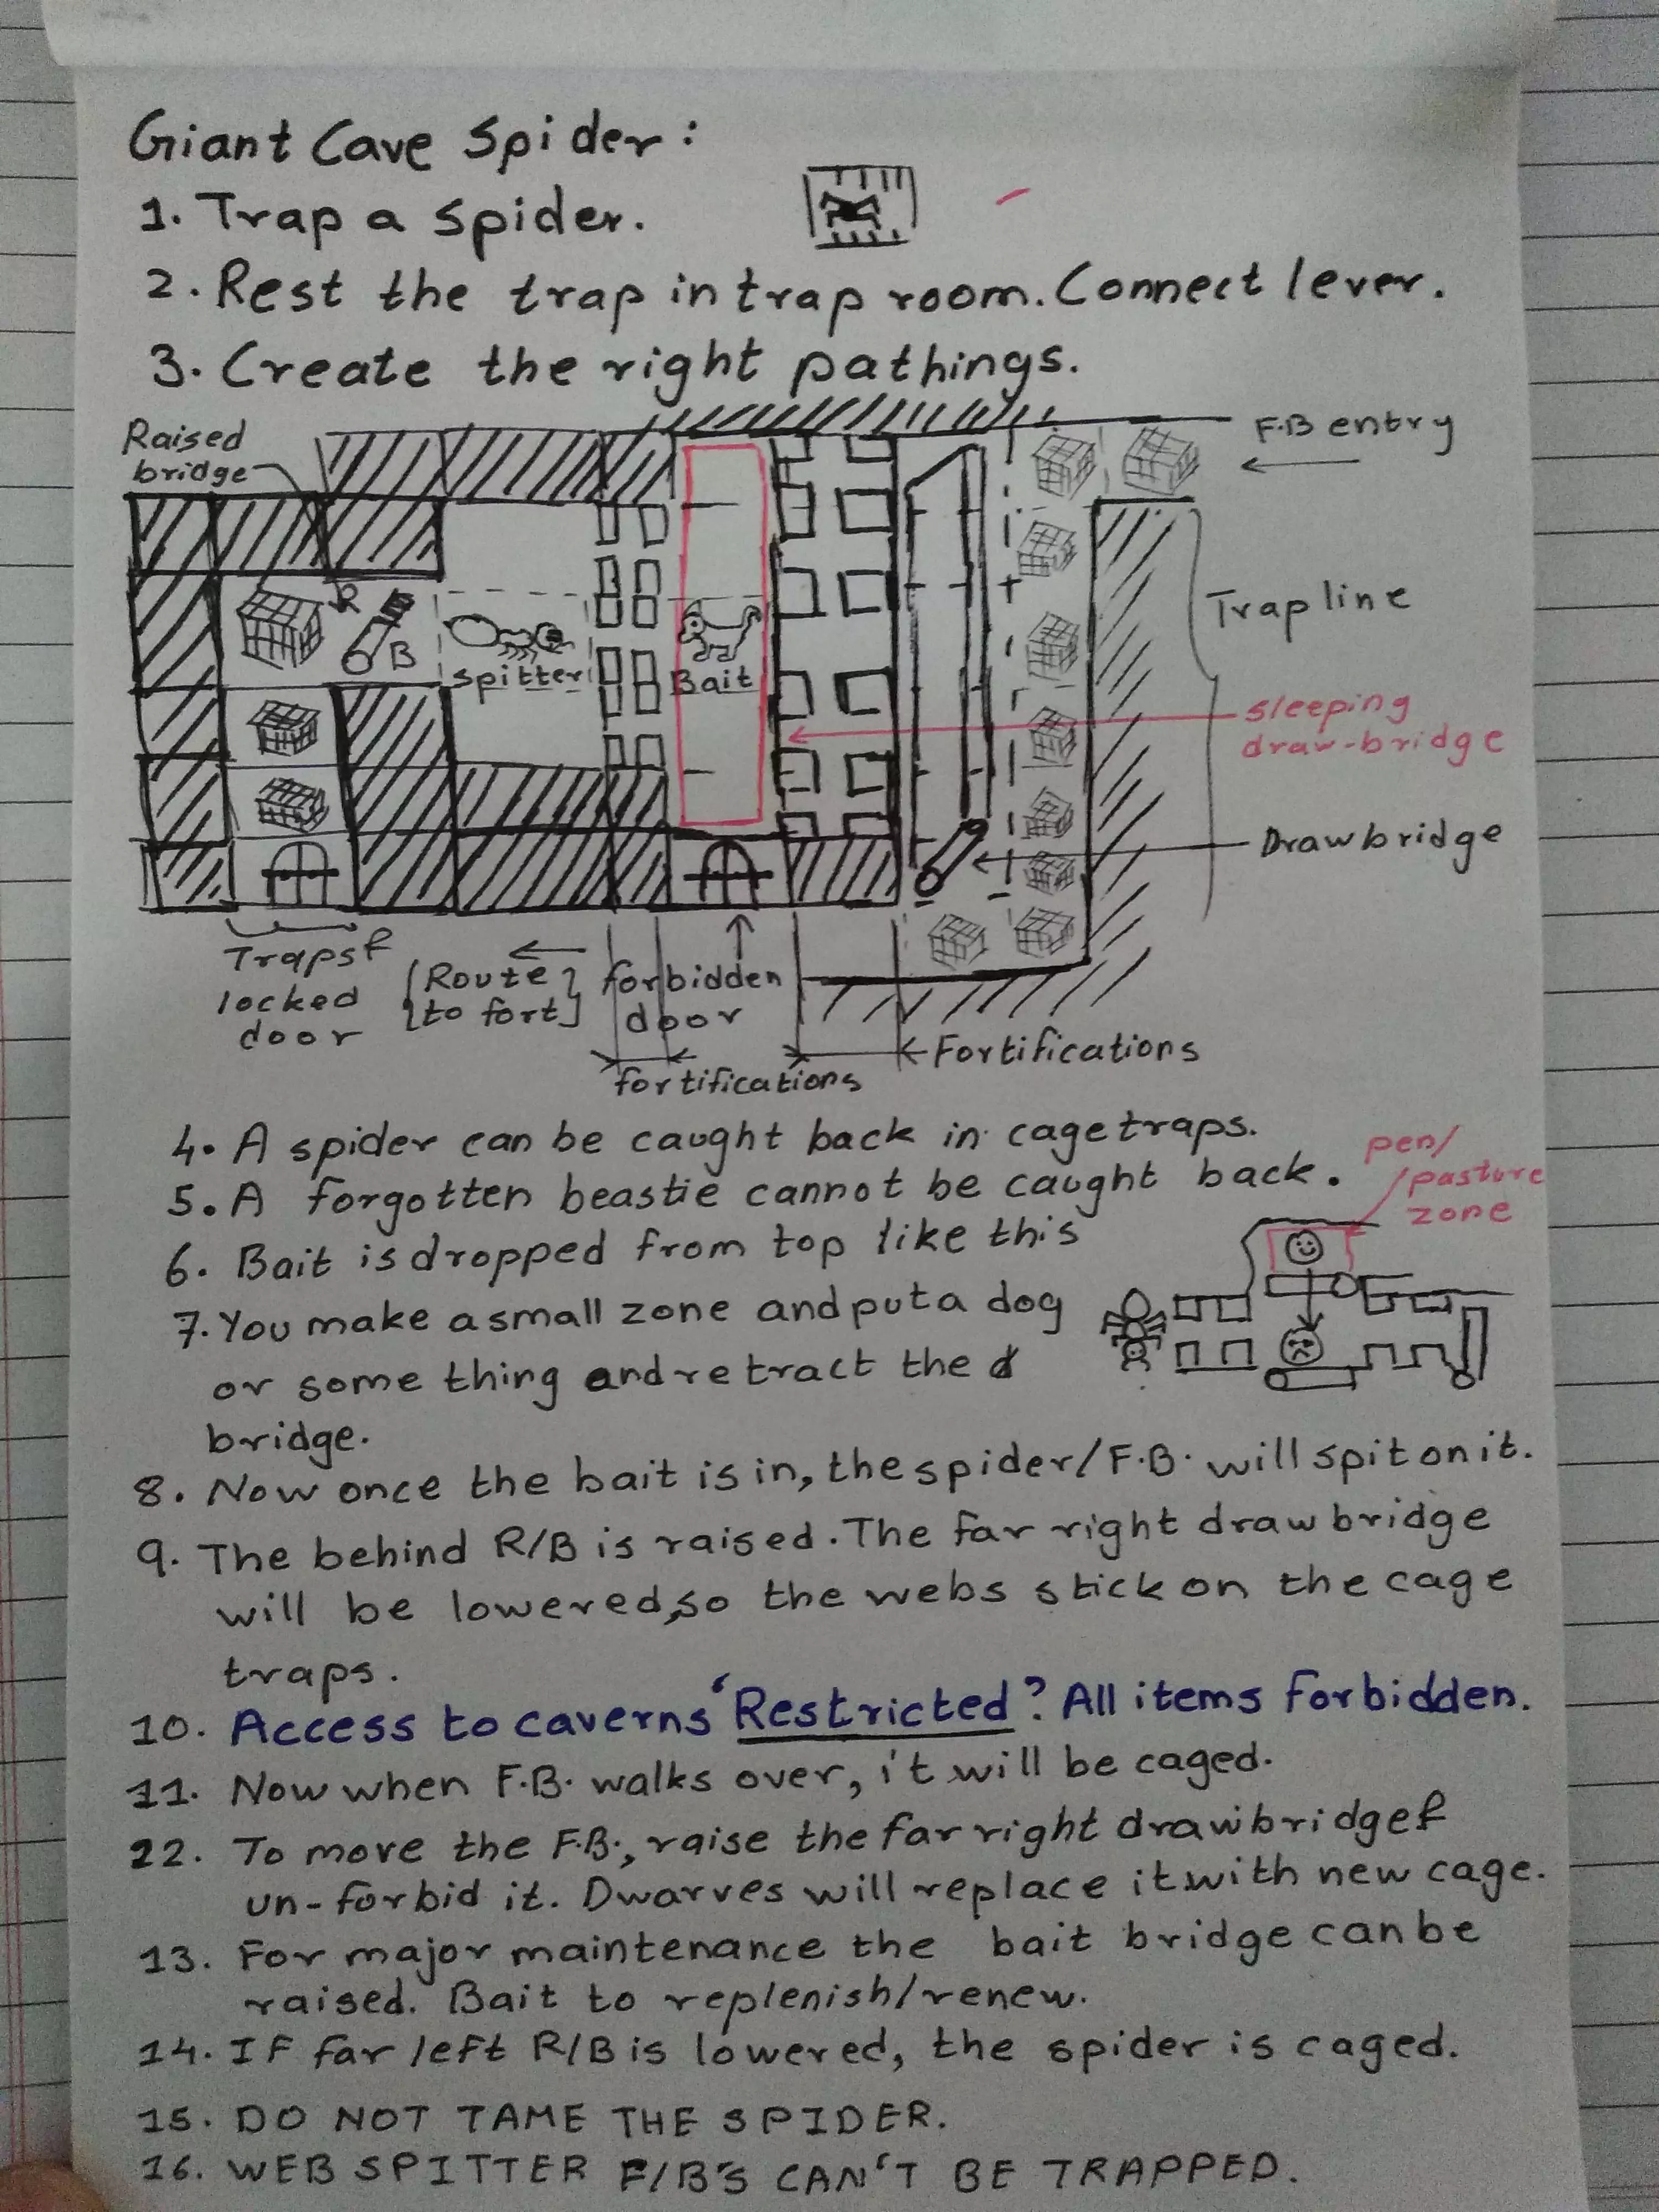 Giant Cave Spider:
1. Trap a spider.
2. Rest the trap in trap room. Connect lever.
3. Create the right pathings.
Raised
bridge
F.B entry
R
B
spitter
Bait
Trap line
sleeping
draw-bridge
Drawbridge
Traps &
locked
door
(Route
to fort)
forbidden
door
fortifications
Fortifications
4. A spider can be caught back in cage traps.
5. A forgotten beastie cannot be caught back.
pen/
/pasture
zone
6. Bait is dropped from top like this
7. You make a small zone and put a dog
or some thing and retract the d
bridge.
8. Now once the bait is in, the spider/F.B. will spit on it.
9. The behind R/B is raised. The far right drawbridge
will be lowered, so the webs stick on the cage
traps.
10. Access to caverns 'Restricted? All items forbidden.
11. Now when F.B. walks over, it will be caged.
22. To move the F.B., raise the far right drawbridge &
un-forbid it. Dwarves will replace it with new cage.
13. For major maintenance the bait bridge can be
raised. Bait to replenish/renew.
14. If far left R/B is lowered, the spider is caged.
15. DO NOT TAME THE SPIDER.
16. WEB SPITTER F/B'S CAN'T BE TRAPPED.